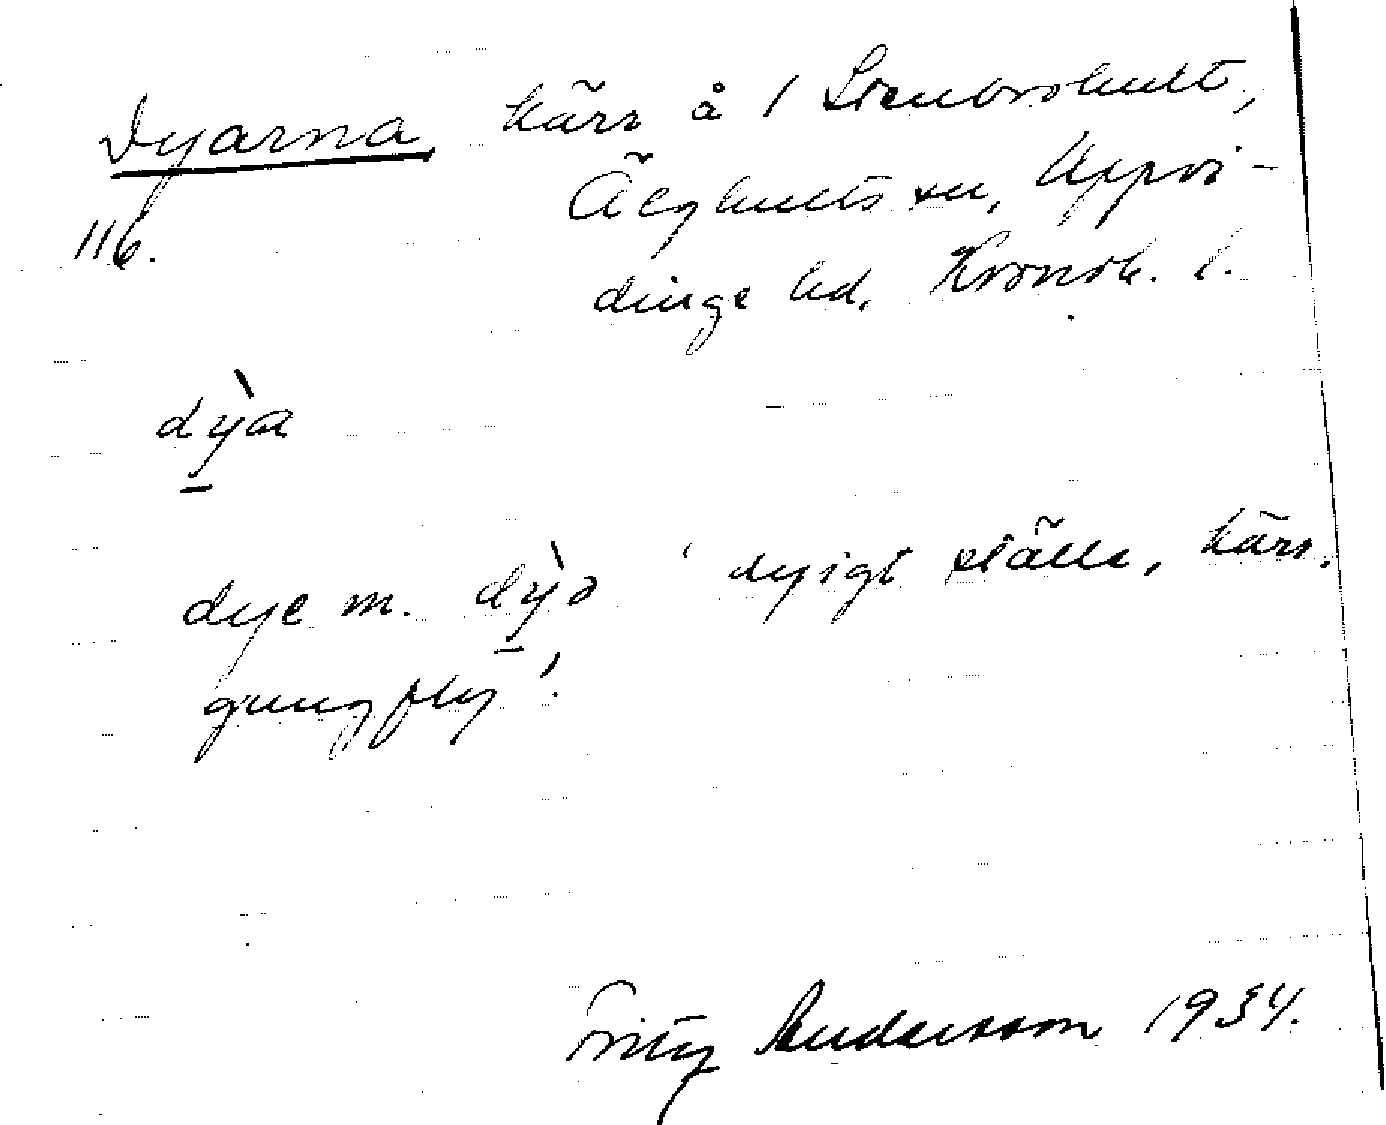 Dyarna, kärr å / Stenbrohult,
116.
Älghults sn, Uppvi-
dinge hd, Kronob. l.
dỳ̱a
dye m. dỳ̱ə 'dyigt ställe, kärr,
gungfly'.
Fritz Andersson 1934.